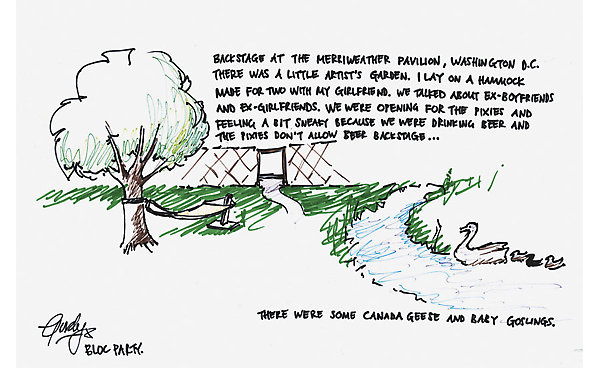 BACKSTAGE AT THE MERRIWEATHER PAVILION, WASHINGTON D.C.
THERE WAS A LITTLE ARTIST'S GARDEN. I LAY ON A HAMMOCK
MADE FOR TWO WITH MY GIRLFRIEND. WE TALKED ABOUT EX-BOYFRIENDS
AND EX-GIRLFRIENDS. WE WERE OPENING FOR THE PIXIES AND
FEELING A BIT SNEAKY BECAUSE WE WERE DRINKING BEER AND
THE PIXIES DON'T ALLOW BEER BACKSTAGE...
THERE WERE SOME CANADA GEESE AND BABY GOSLINGS.
BLOC PARTY.